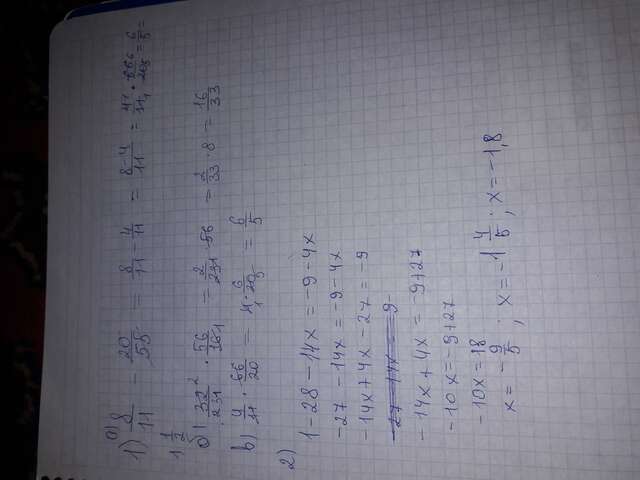 а)
1) 8/11 - 20/55 = 8/11 - 4/11 = 8-4/11 = 4/11 · 66/20 = 6/5 =
1 1/2
б) 32/231 · 56/ = 2/231 · 56 = 2/33 · 8 = 16/33
в) 4/11 · 66/20 = = 6/5
2)
1-28-14x=-9-4x
-27-14x=-9-4x
-14x+4x-27=-9
-14x+4x=-9+27
-10x=-9+27
-10x=18
x=-9/5, x=-1 4/5. x=-1,8